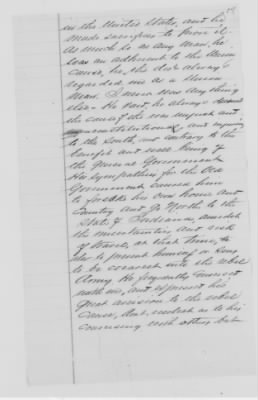 in the United States, and he
made sacrifices to prove it
As much so as any man, he
was an adherent to the Union
Cause, he, the dec'd always
regarded me as a Union
man. I never was any thing
else - He said, he always
the cause of the war unjust and
unconstitutional and
to the South, and contrary to the
benefit and well being of
the General Government
His sympathies for the
Government caused him
to forsake his own home and
Country and go North to the
State of Indiana, amidst
the uncertainties and risk
of travel, at that time,
also to prevent himself &
to be coerced into the rebel
Army He frequently conversed
with me, and expressed his
great aversion to the rebel
Cause, but, as to his
conversing with others but